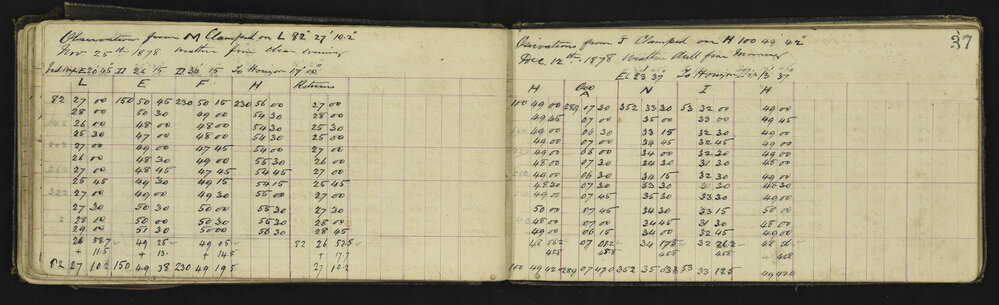 Observation from M Clamped on L 82° 27' 10.2"
Nov 25th 1878 weather fine clear evening
E 20 45 D 26 15 D 34 15 To Horizon 17 00
L E F H Return
82 27 00 150 50 45 230 50 15 230 56 00 27 00
28 00 50 30 49 00 54 30 28 00
26 00 48 00 48 00 54 30 25 30
25 30 47 00 48 00 54 30 25 00
27 00 49 00 47 45 54 00 27 00
26 00 48 30 49 00 55 30 26 00
27 00 48 45 47 45 54 45 27 00
25 45 49 30 49 15 54 15 25 45
27 00 49 00 49 30 55 00 27 00
27 30 50 30 50 00 55 30 27 30
28 00 50 00 50 30 55 30 28 00
29 00 51 30 50 00 56 30 28 45
26 58.7 49 25 49 05 82 26 52.5
+ 11.5 + 13 + 14.5 + 17.7
82 27 10.2 150 49 38 230 49 19.5 27 10.2
37
Observations from I Clamped on H 100 49 42"
Dec 12th 1878 Weather dull fine morning
El 23 37 To Horizon 13 37
H Obo N I H
100 49 00 289 07 30 352 33 30 53 32 00 49 00
49 45 07 00 35 00 33 00 49 45
49 00 06 30 33 15 32 30 49 00
49 00 07 00 34 15 32 45 49 00
49 00 06 00 34 00 32 30 49 00
48 00 07 30 34 30 31 30 48 00
49 00 06 30 34 15 32 30 49 00
48 30 07 30 33 30 31 30 48 30
49 00 07 45 35 30 33 30 49 00
50 00 07 45 34 30 33 15 50 00
48 00 07 00 34 45 31 30 48 00
49 00 06 15 34 00 32 45 49 00
48 56.2 07 01.2 34 17.5 32 26.2 48 56
45.8 45.8 45.8 45.8 45.8
100 49 42 289 07 47.0 352 35 03.3 53 33 12.5 49 42.0